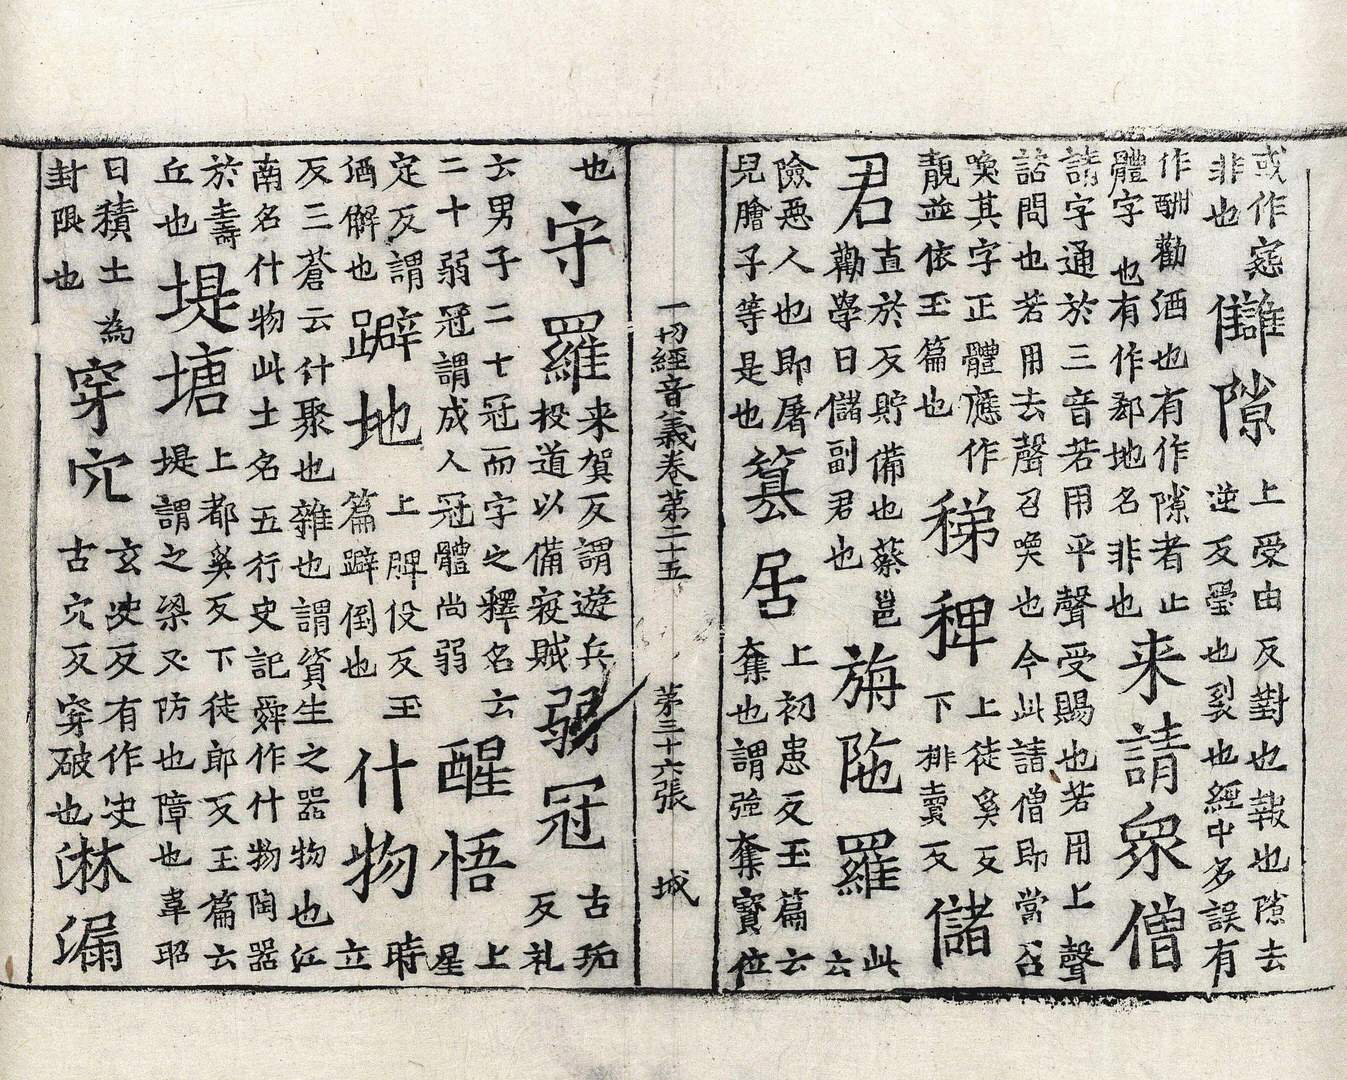 或作𡨥
非也
讎隙
上受由反對也報也隙去
逆反璺也裂也經中多誤有
作酬勸酒也有作隙者止
體字也有作郄地名非也
来請眾僧
請字通於三音若用平聲受賜也若用上聲
諮問也若用去聲召喚也今此請僧即當召
喚其字正體應作
靚並依玉篇也
稊稗
上徒奚反
下排賣反
儲
君
直於反貯備也蔡邕
勸學曰儲副君也
旃陁羅
此
云
險惡人也即屠
兒膾子等是也
篡居
上初患反玉篇云
奪也謂強奪寶位
一切經音義卷第二十五 第三十六張 城
也
守羅
来賀反謂遊兵
投道以備寇賊
弱冠
古玩
反礼
云男子二十冠而字之釋名云
二十弱冠謂成人冠體尚弱
醒悟
上
星
定反謂
酒解也
躃地
上脾役反玉
篇躃倒也
什物
時
立
反三蒼云什聚也雜也謂資生之器物也江
南名什物此土名五行史記舜作什物陶器
於壽
丘也
堤塘
上都奚反下徒郎反玉篇云
堤謂之梁又防也障也韋昭
曰積土為
封限也
穿穴
玄决反有作决
古穴反穿破也
淋漏